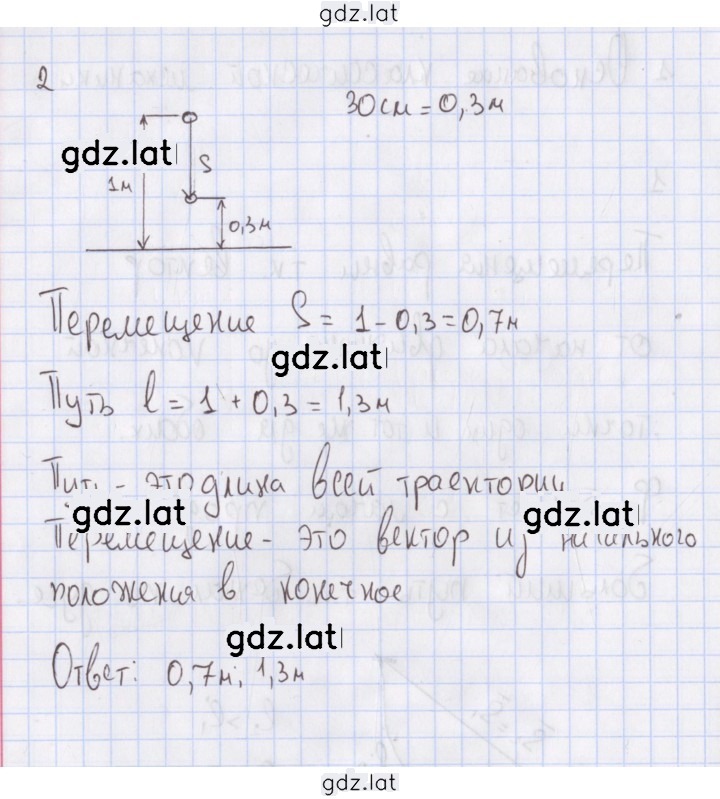 gdz.lat
2
30см = 0,3м
gdz.lat
S
1м
0,3м
Перемещение S = 1 - 0,3 = 0,7м
gdz.lat
Путь l = 1 + 0,3 = 1,3м
Путь - это длина всей траектории
gdz.lat
gdz.lat
Перемещение - это вектор из начального
положения в конечное
gdz.lat
Ответ: 0,7м; 1,3м
gdz.lat